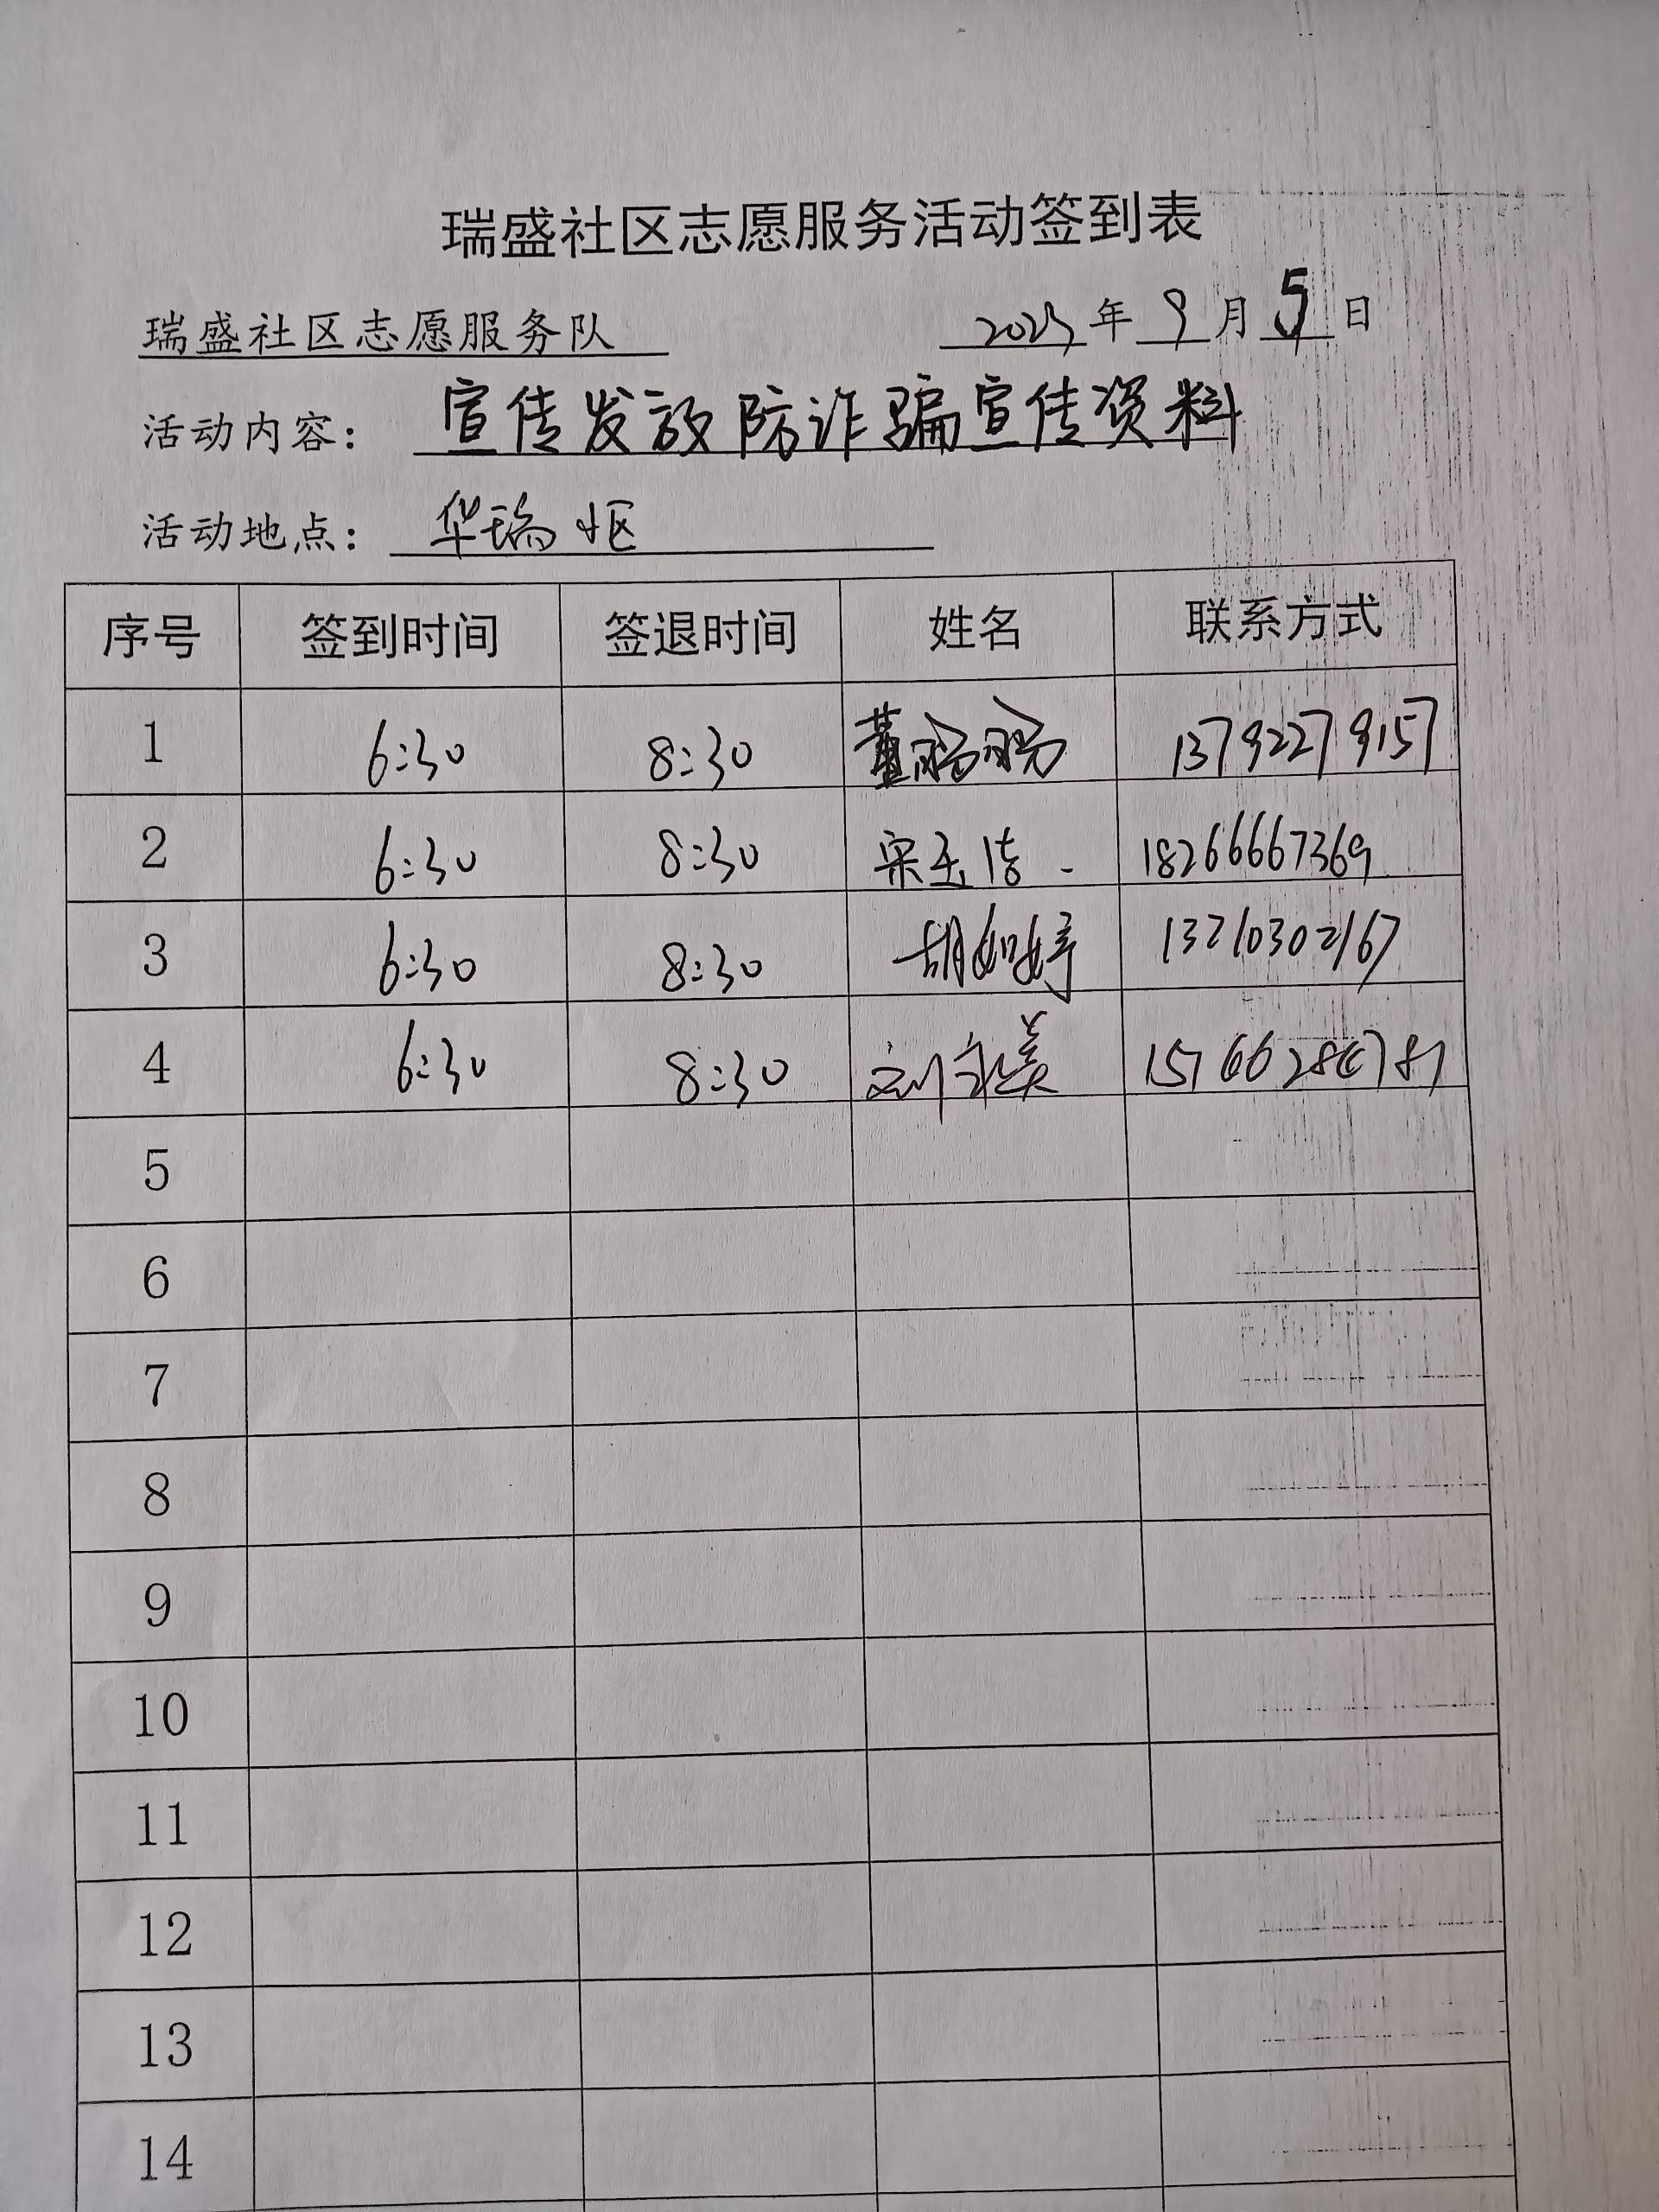 瑞盛社区志愿服务活动签到表
瑞盛社区志愿服务队 2023年9月5日
活动内容：宣传发放防诈骗宣传资料
活动地点：华瑞小区
序号 签到时间 签退时间 姓名 联系方式
1 6:30 8:30 董 13792279157
2 6:30 8:30 宋玉洁 18266667369
3 6:30 8:30 胡如婷 13210302167
4 6:30 8:30 刘永美
5
6
7
8
9
10
11
12
13
14